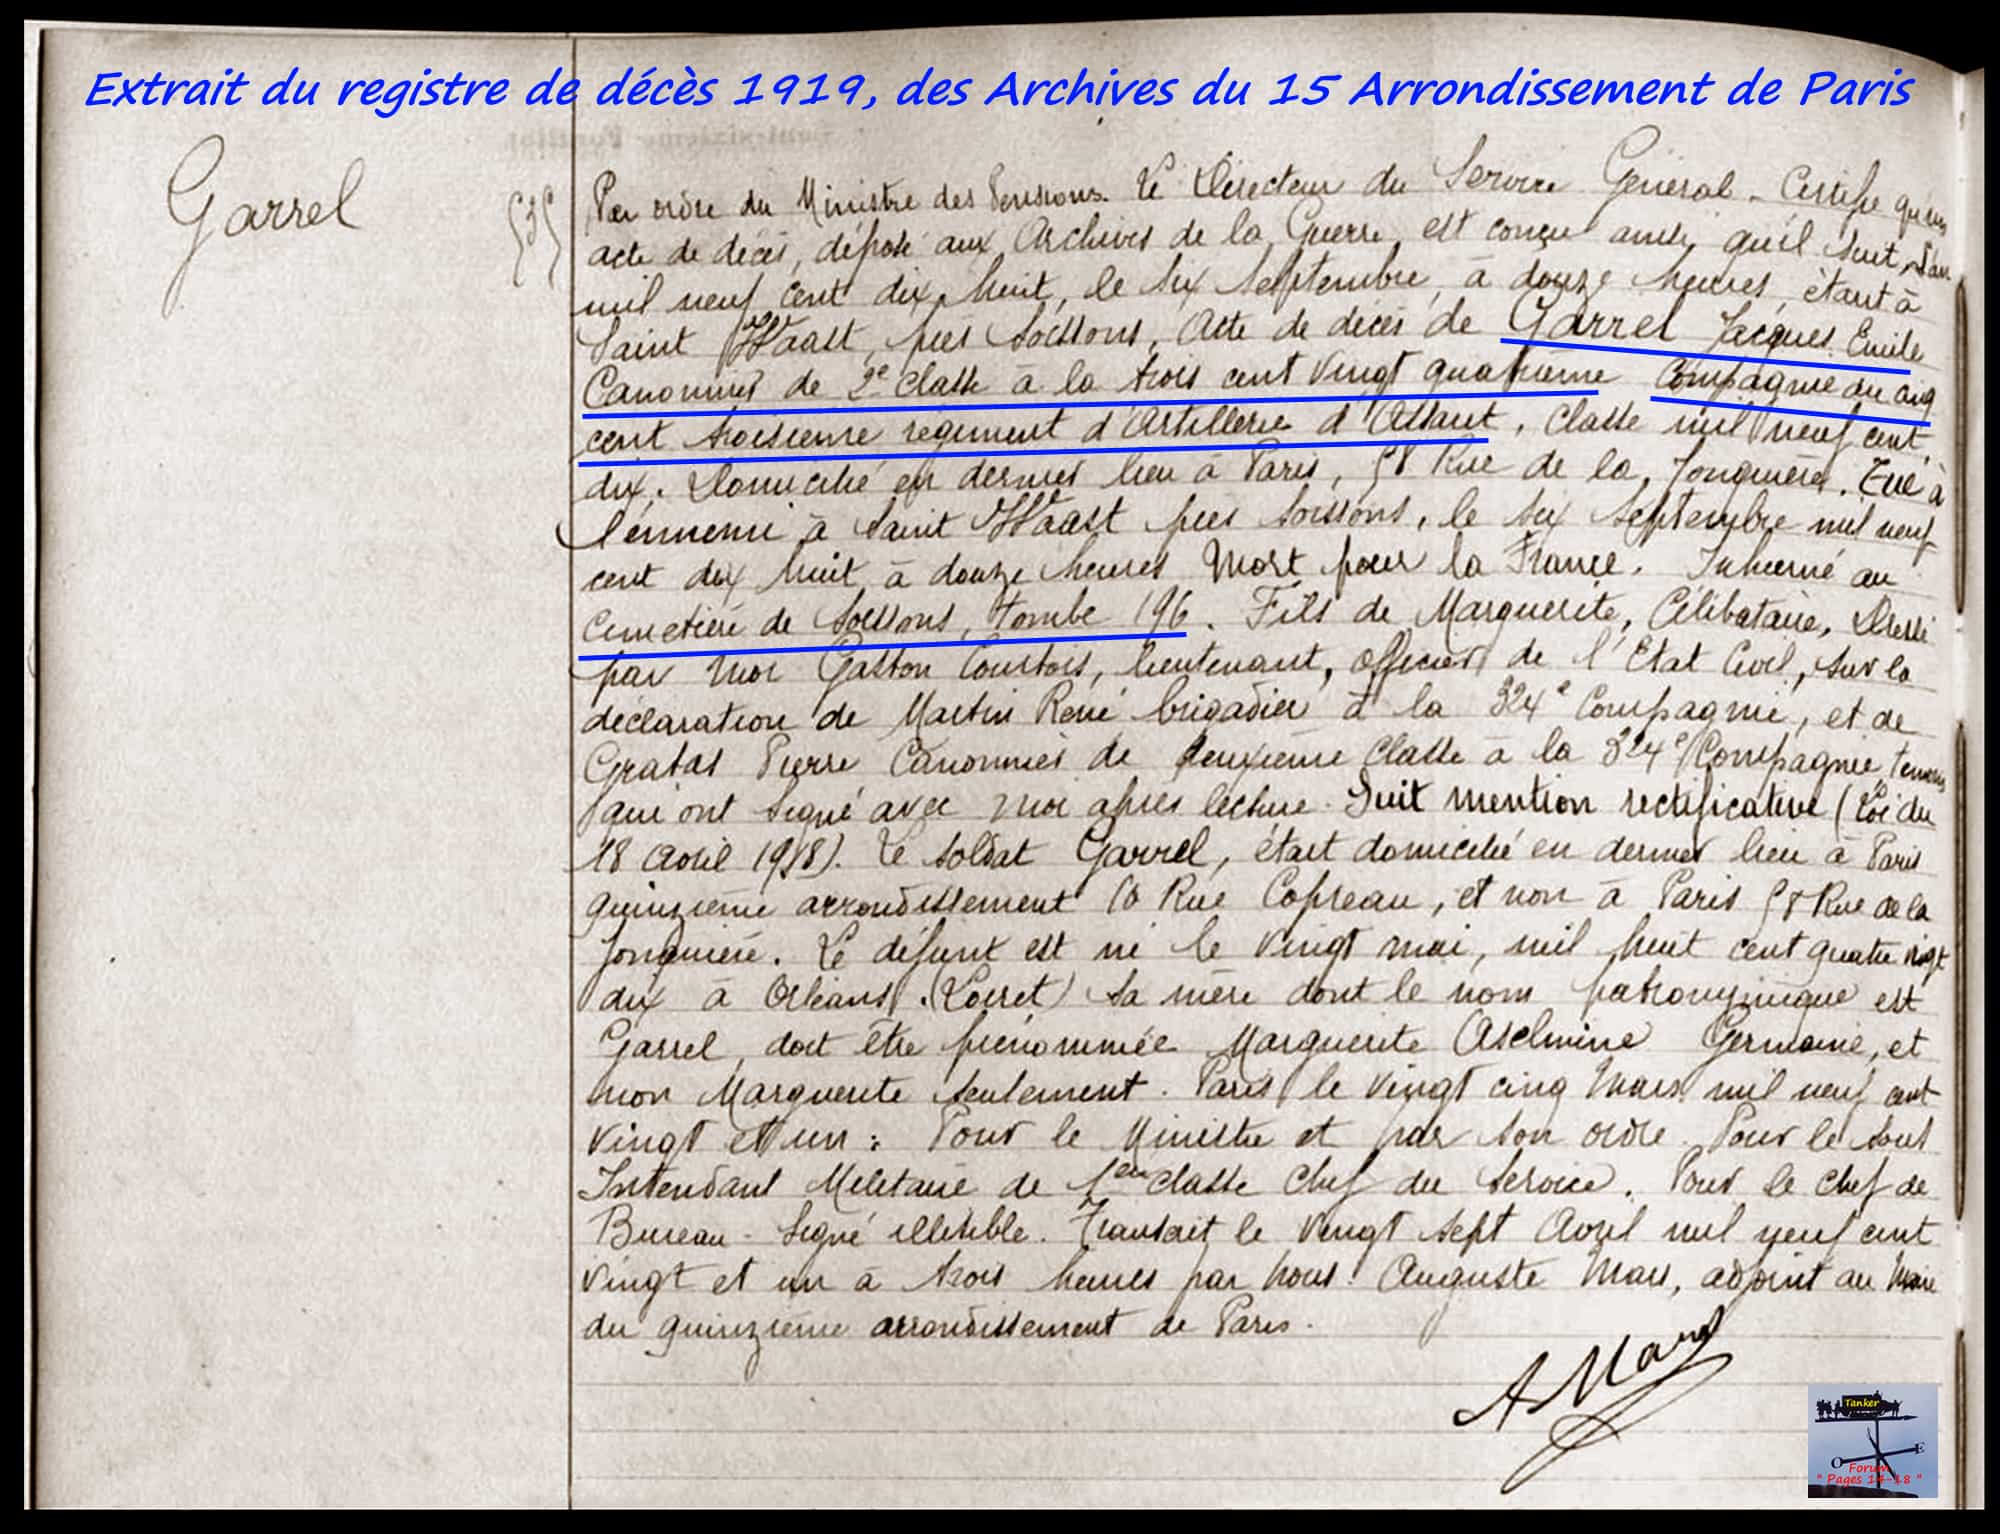 Extrait du registre de décès 1919, des Archives du 15 Arrondissement de Paris
Garrel
Par ordre du Ministre des Pensions. Le Directeur du Service Général - Certifie qu'un
acte de décès, déposé aux Archives de la Guerre, est conçu ainsi qu'il suit, L'an
mil neuf cent dix huit, le six Septembre, à douze heures, étant à
Saint Waast, près Soissons, Acte de décès de Garrel Jacques Emile
Canonnier de 2e classe à la trois cent vingt quatrième Compagnie du cinq
cent troisième régiment d'Artillerie d'Assaut, Classe mil neuf cent
dix. Domicilié en dernier lieu à Paris, 58 Rue de la Jonquière. Tué à
l'ennemi à Saint Waast près Soissons, le six Septembre mil neuf
cent dix huit à douze heures Mort pour la France. Inhumé au
Cimetière de Soissons, tombe 196. Fils de Marguerite, Célibataire, Dressé
par moi Gaston Courtois, lieutenant, officier de l'Etat Civil, sur la
déclaration de Martin René brigadier à la 324e Compagnie, et de
Pierre Canonnier de deuxième Classe à la 324e Compagnie, témoins
qui ont signé avec moi après lecture. Suit mention rectificative (Loi du
18 Avril 1918). Le soldat Garrel, était domicilié en dernier lieu à Paris
quinzième arrondissement 10 Rue Copreau, et non à Paris 58 Rue de la
Jonquière. Le défunt est né le vingt mai, mil huit cent quatre vingt
dix à Orléans. (Loiret) Sa mère dont le nom patronymique est
Garrel, doit être prénommée Marguerite Aselmine Germaine, et
non Marguerite seulement. Paris le vingt cinq Mars mil neuf cent
vingt et un : Pour le Ministre et par son ordre. Pour le Sous
Intendant Militaire de 1ere classe Chef du Service. Pour le Chef de
Bureau - Signé illisible. Transcrit le vingt sept Avril mil neuf cent
vingt et un à trois heures par nous. Auguste Mars, adjoint au Maire
du quinzième arrondissement de Paris.
A Mars
Tanker
O E
Forum
" Pages 14-18 "